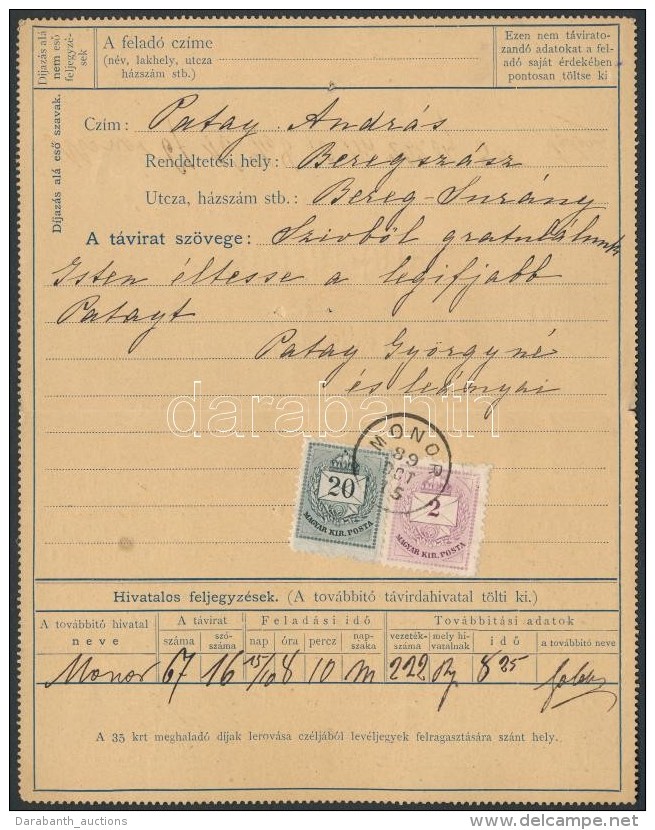 Díjazás alá
nem eső
feljegyzé-
sek
A feladó czíme
(név, lakhely, utcza
házszám stb.)
Ezen nem távirato-
zandó adatokat a fel-
adó saját érdekében
pontosan töltse ki
Díjazás alá eső szavak.
Czím: Patay András
Rendeltetési hely: Beregszász
Utcza, házszám stb.: Bereg-Surány
A távirat szövege: Szivből gratulálunk
Isten éltesse a legifjabb
Patayt
Patay Györgyné
és leányai
darabanth
MONOR
89
OCT
15
20
MAGYAR KIR. POSTA
2
MAGYAR KIR. POSTA
Hivatalos feljegyzések. (A továbbitó távirdahivatal tölti ki.)
A továbbitó hivatal
neve
A távirat
száma
szó-
száma
Feladási idő
nap
óra
percz
nap-
szaka
Továbbitási adatok
vezeték-
száma
mely hi-
vatalnak
idő
a továbbitó neve
Monor 67 16 15/10 8 10 m 222 8 25
A 35 krt meghaladó díjak lerovása czéljából levéljegyek felragasztására szánt hely.
Darabanth_auctions
delcampe.net